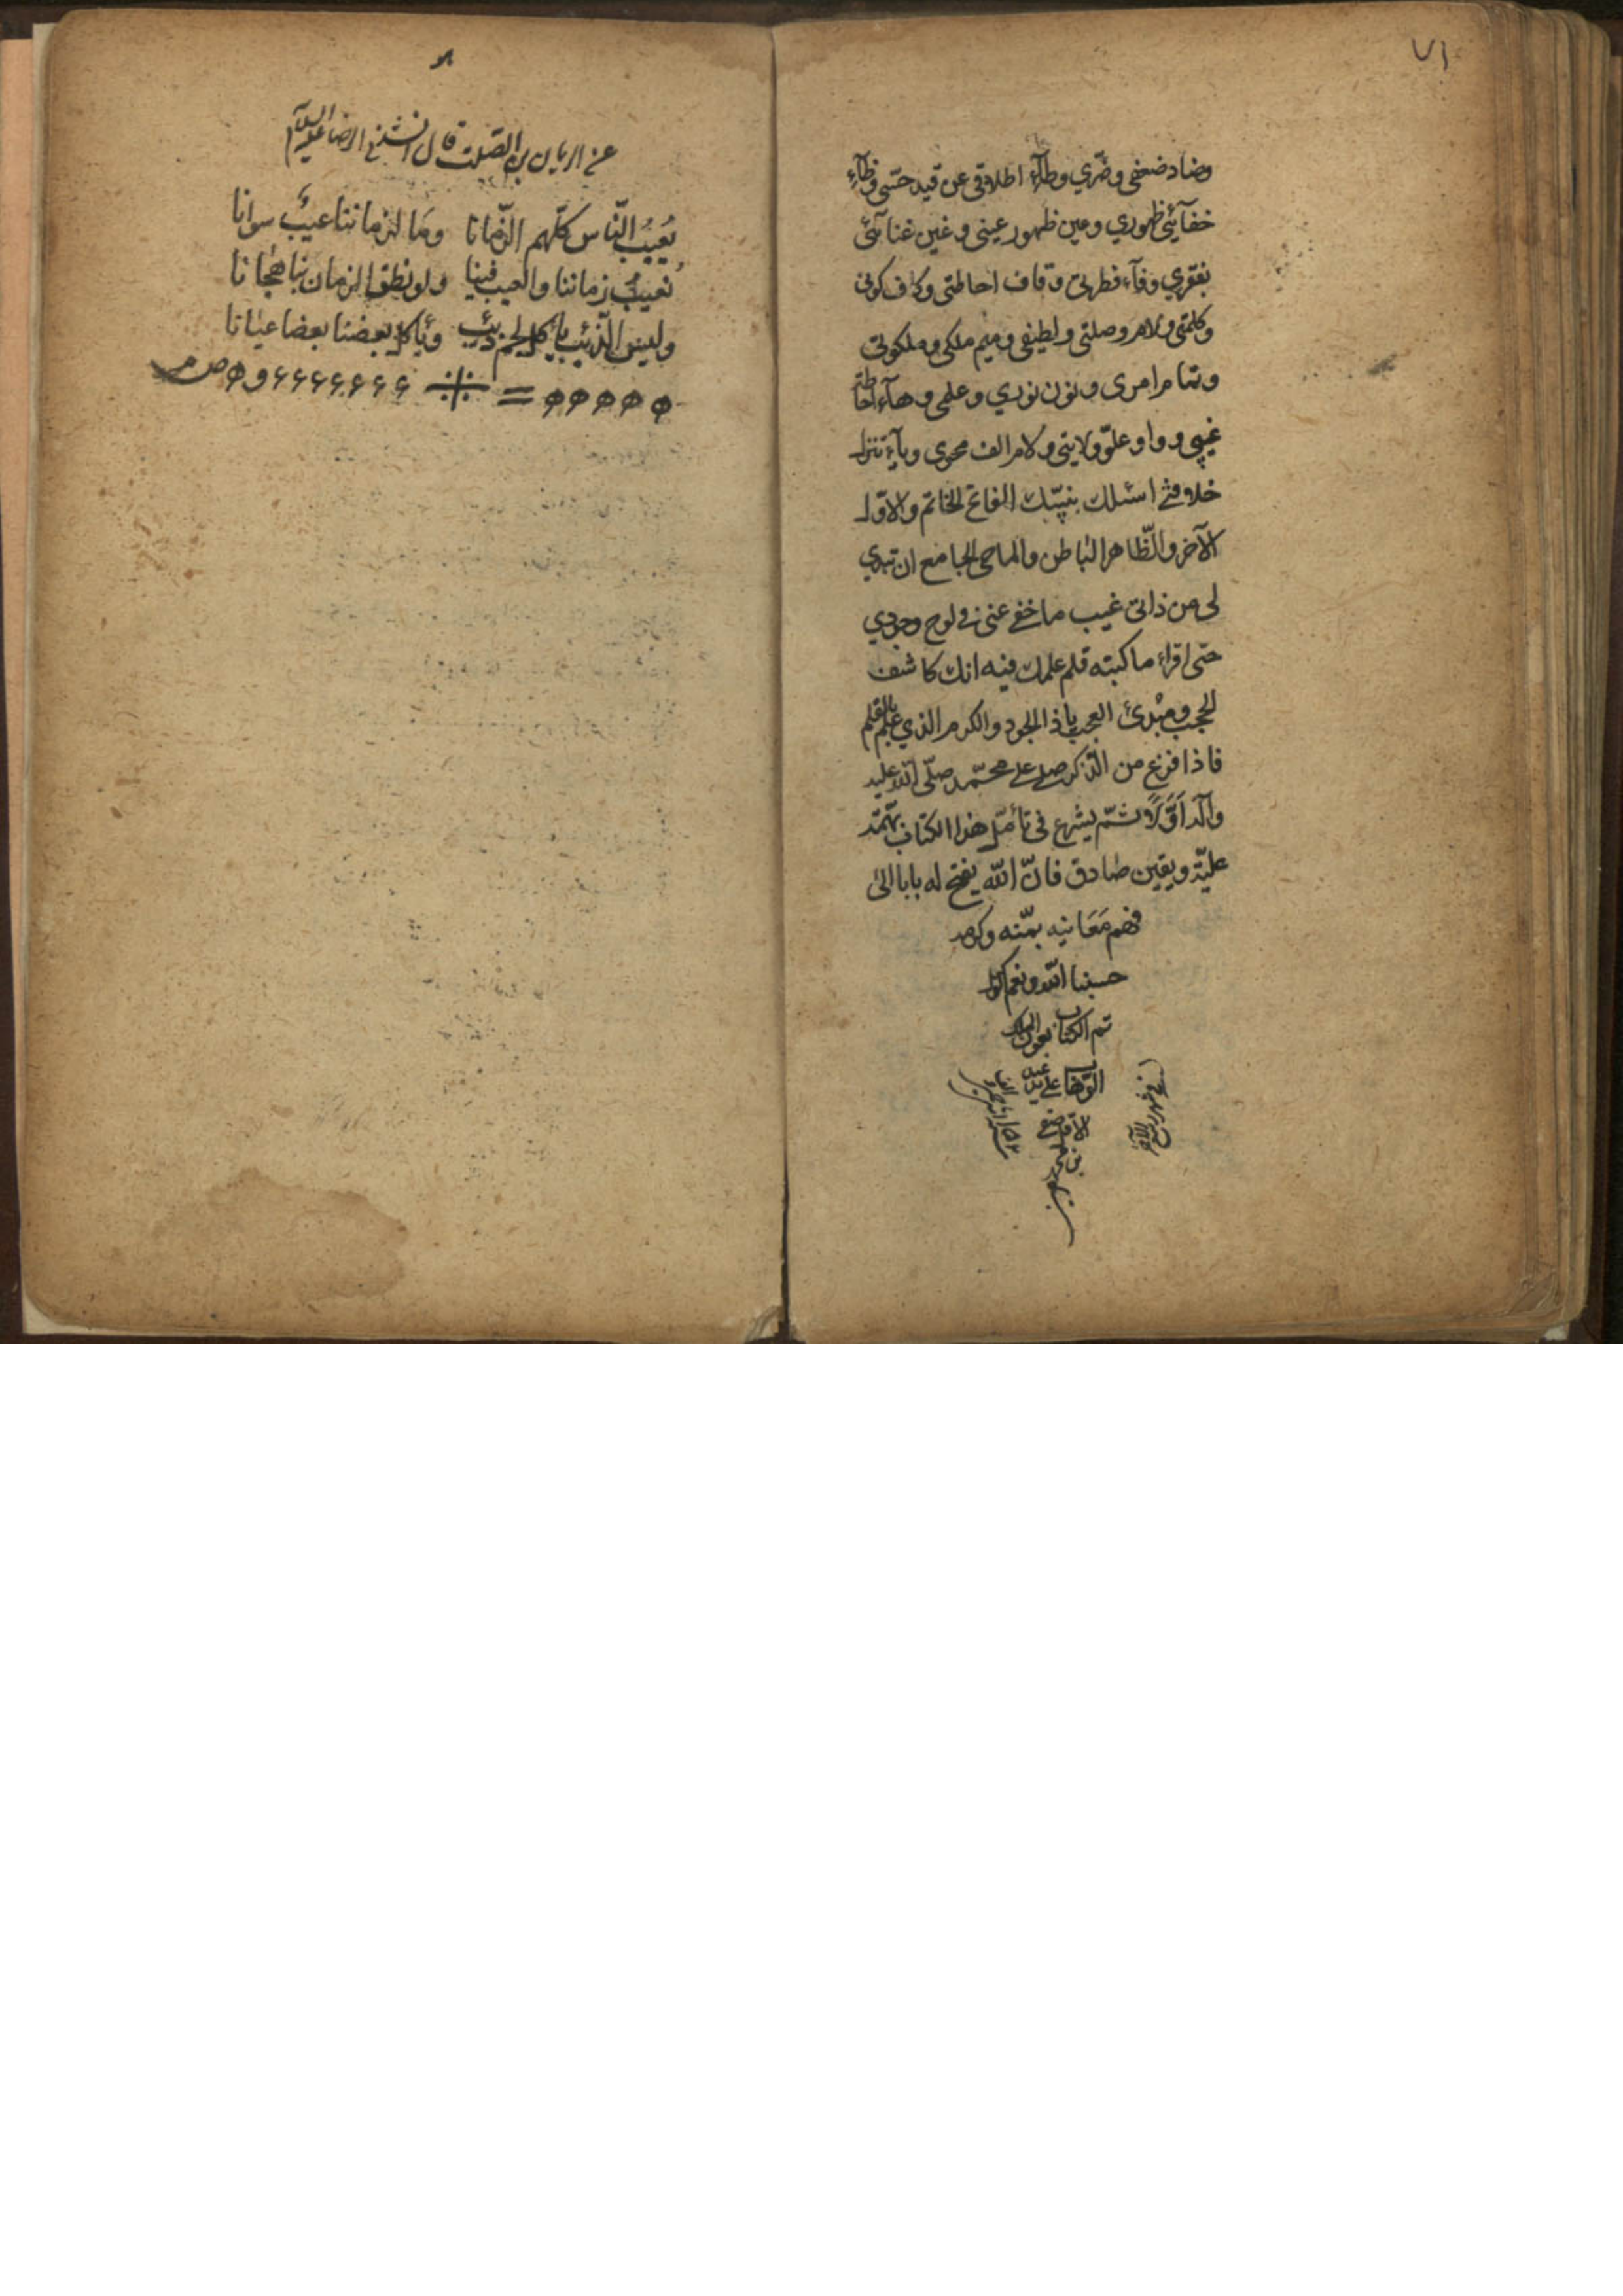 ٧١
وضاد ضعفى وضرّي وطآء اطلاقى عن قيد حسّى وظآء
خفآئي ظهوري وعين ظهور عينى وغين غنآئى
بفقري وفآء فطرتى وقاف احاطتى وكاف كونى
وكلمتى ولام وصلتى ولطيفى وميم ملكى وملكوتى
امرى ونون نوري وعلمى وهآء احاطة
غيبى وواو علوّ ولايتى ولام الف محوى ويآء تنزل
خلافتى اسئلك بنبيّك الفاتح الخاتم والاوّل
الآخر والظّاهر الباطن والماحى الجامع ان تبدي
لى من ذاتى غيب ما خفى عنى فى لوح وجودي
حتى اقراء ما كتبته قلم علمك فيه انك كاشف
الحجب ومبدئ العجب ياذا الجود والكرم الذي علم بالقلم
فاذا فرغ من الذكر صلى على محمّد صلّى الله عليه
وآله اوّلاً ثمّ يشرع فى تأمّل هذا الكتاب بهمّة
عليّة ويقين صادق فانّ الله يفتح له بابا الى
فهم مَعَانيه بمنّه وكرمه
حسبنا الله ونعم الوكيل
تم الكتاب بعون الملك
الوهاب على يد
فى شهر ربيع الآخر
عن الريان بن الصّلت قال انشدنى الرضا عليه السلام
يَعيبُ النّاس كلّهم الزّمانا وما لزماننا عيبٌ سوانا
نُعيبُ زماننا والعيب فينا ولو نطق الزمان بنا هجانا
وليس الذّئب يأكل لحم ذئب ويأكل بعضنا بعضا عيانا